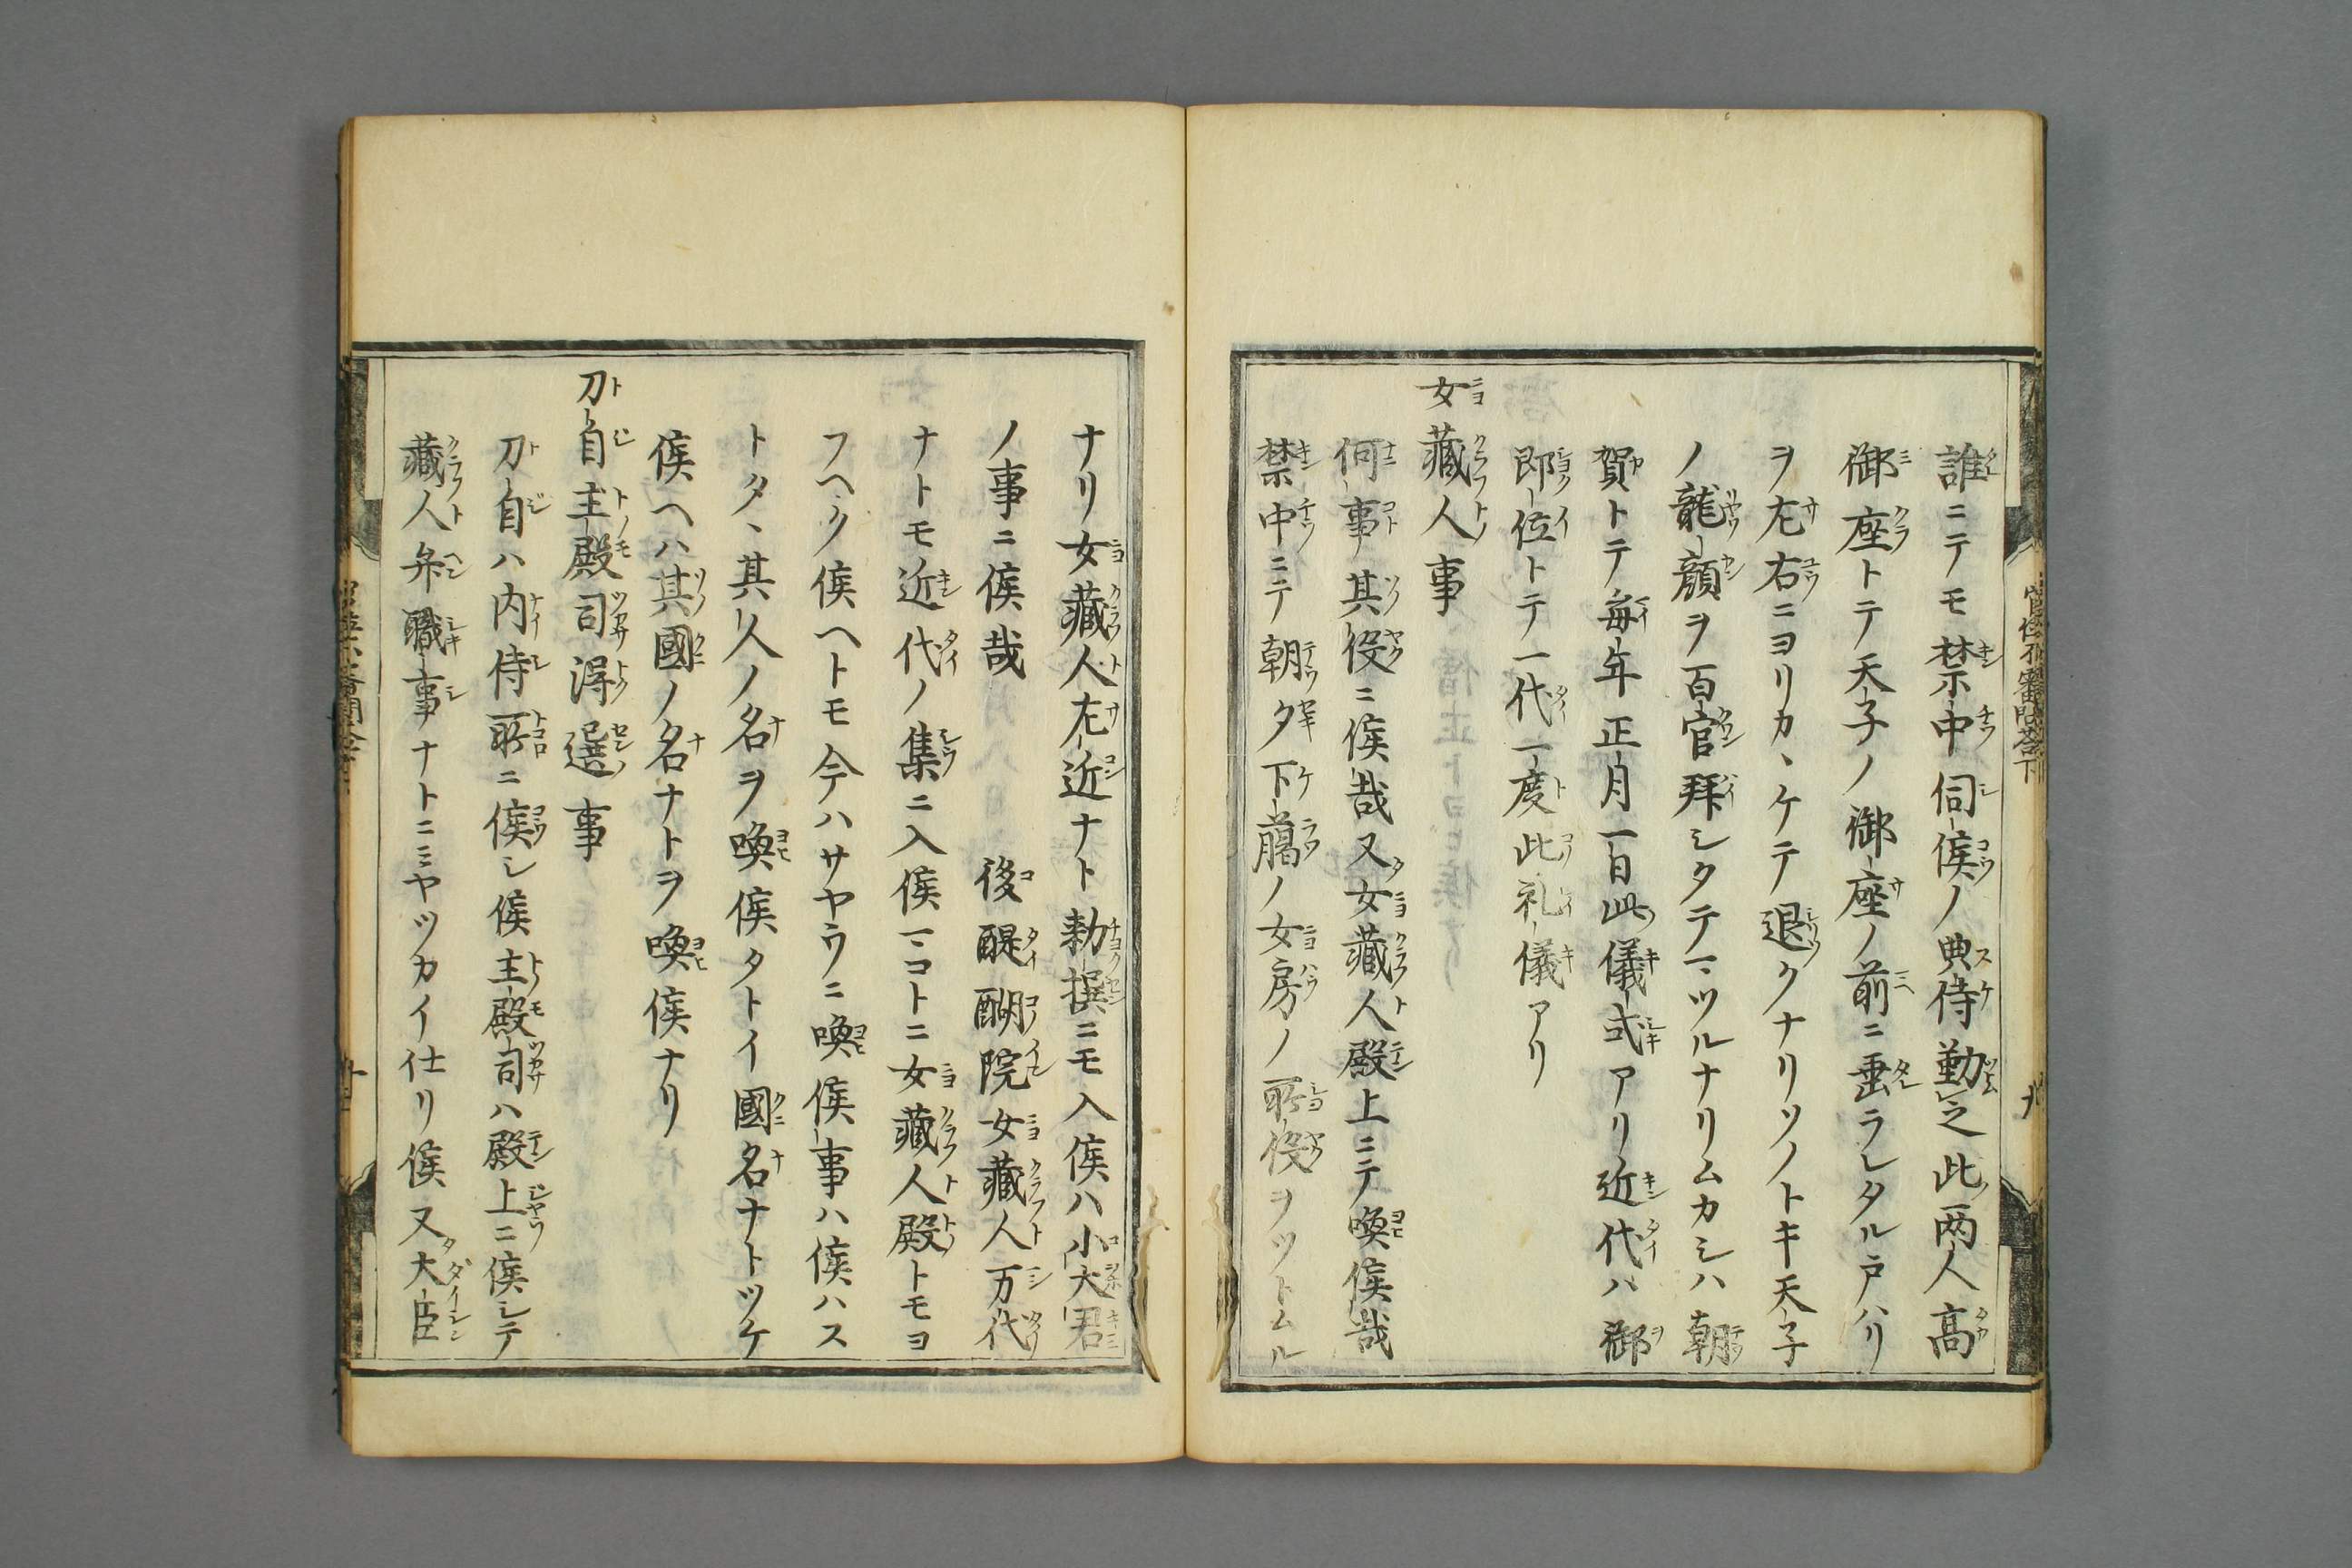 誰ニテモ禁中伺候ノ典侍勤之此両人高
御座トテ天子ノ御座ノ前ニ垂ラレタル戸ハリ
ヲ左右ニヨリカヽケテ退クナリソノトキ天子
ノ龍顔ヲ百官拜シタテマツルナリムカシハ朝
賀トテ毎年正月一日此儀式アリ近代ハ御
即位トテ一代一度此礼儀アリ
女藏人事
何事其役ニ候哉又女藏人殿上ニテ喚候哉
禁中ニテ朝夕下﨟ノ女房ノ所役ヲツトムル
官位不審問荅下
ナリ女藏人左近ナト勅撰ニモ入候ハ小大君
ノ事ニ候哉　後醍醐院女藏人万代
ナトモ近代ノ集ニ入候マコトニ女藏人殿トモヨ
フヘク候ヘトモ今ハサヤウニ喚候事ハ候ハス
トタヽ其人ノ名ヲ喚候タトイ國名ナトツケ
候ヘハ其國ノ名ナトヲ喚候ナリ
刀自主殿司得選事
刀自ハ内侍所ニ候シ候主殿司ハ殿上ニ候シテ
藏人弁職事ナトニミヤツカイ仕リ候又大臣